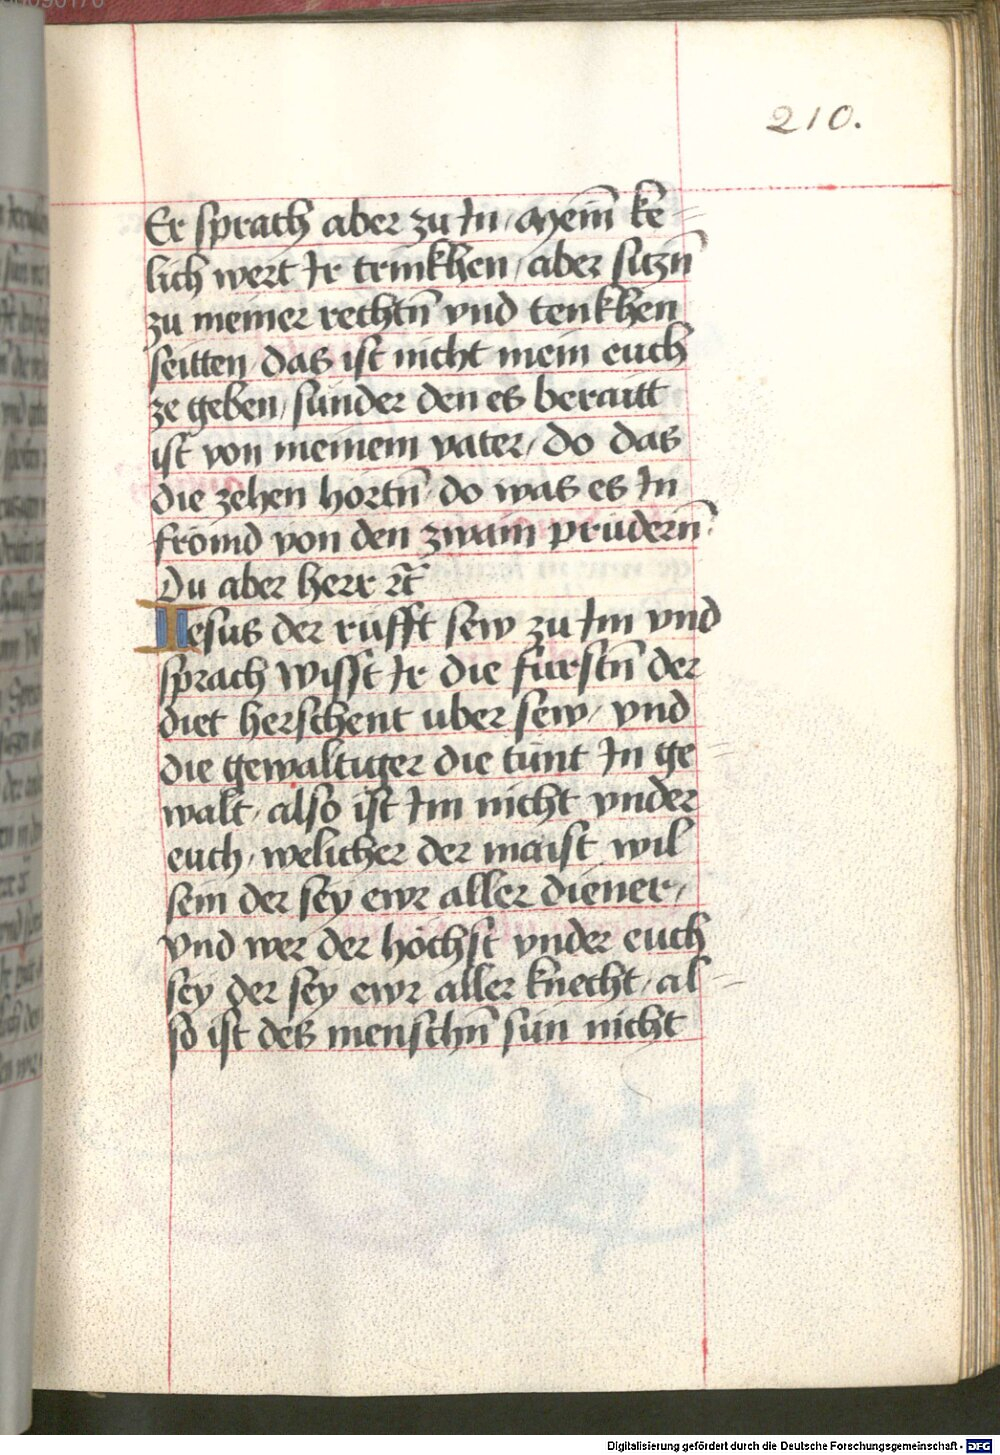 210.
Er sprach aber zu In, Meim̄ ke=
lich wert Ir trinkhen, aber siczn̄
zu meiner rechtn̄ vnd tenkhen
seitten, das ist nicht mein euch
ze geben, sunder den es beraitt
ist von meinem vater, do das
die zehen hortn̄, do was es In
frömd von den zwain prüdern̄,
Du aber herr ꝛc̄
Iesus der rüfft sew zu Im vnd
sprach Wisst Ir die fürstn̄ der
diet herschent uber sew, vnd
die gewaltiger die tünt In ge=
walt, also ist Im nicht vnder
euch, welicher der maist wil
sein der sey ewr aller diener,
vnd wer der höchst vnder euch
sey der sey ewr aller knecht, al=
so ist des menschn̄ sun nicht
Digitalisierung gefördert durch die Deutsche Forschungsgemeinschaft - DFG